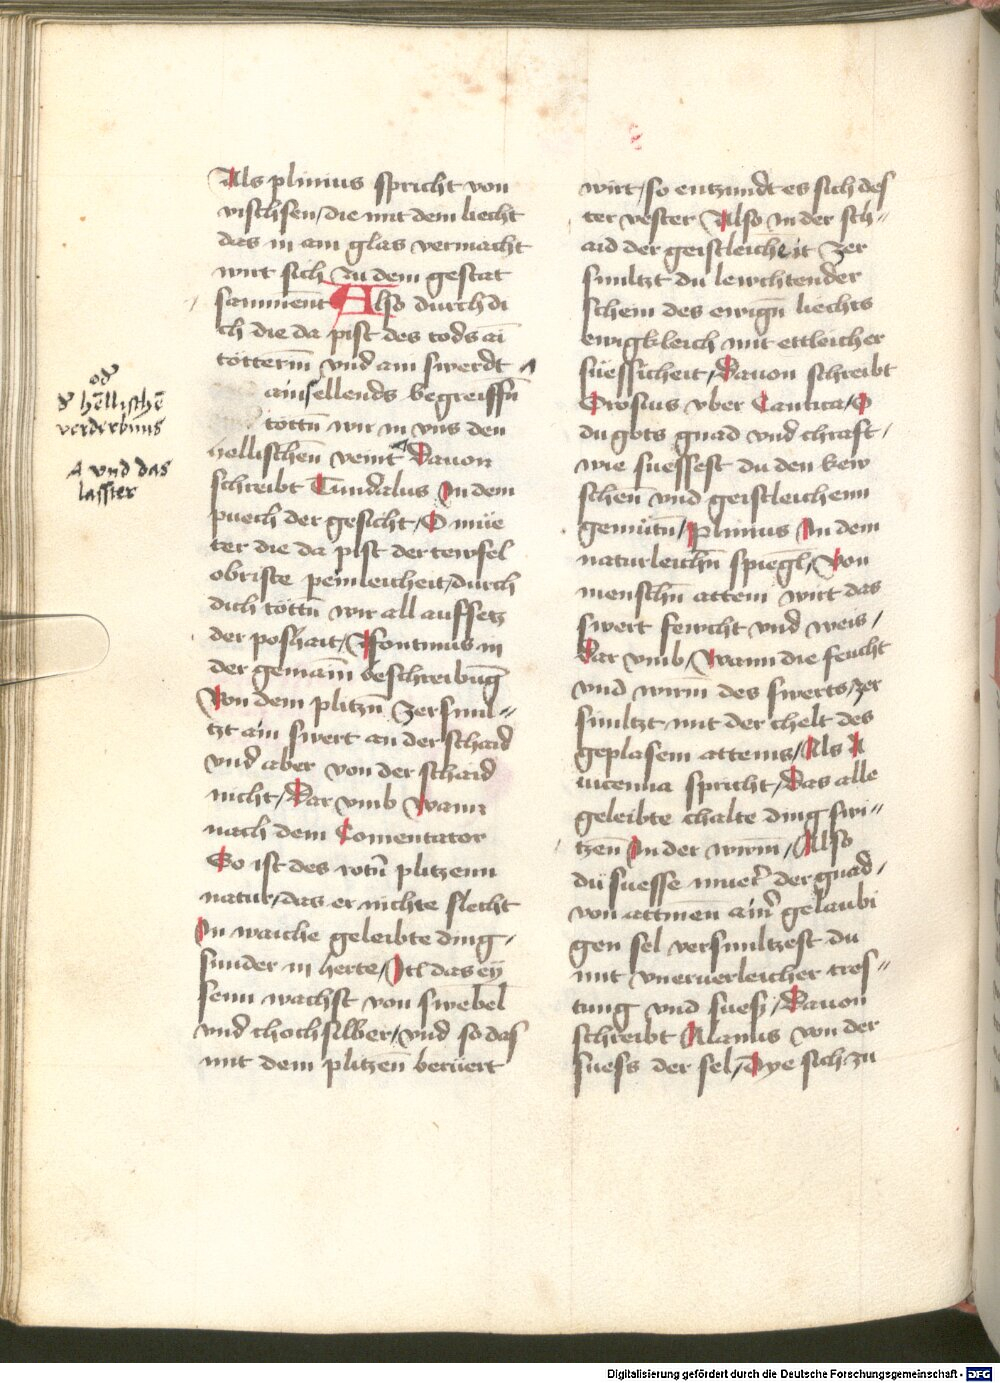 Als plinius spricht von
vischsen / die mit dem liecht
das in ain glas vermacht
wirt sich zu dem gestat
sammēnt Also durch di
ch die da pist des tods ai
totterin̄ vnd ain swerdt
ainsellends begreiffn̄
tottn̄ wir in vns den
hellischen̄ veint Dauon
schreibt Tundalus In dem
puech der gesicht / O mue
ter die da pist der tewfel
obriste peinleicheit / durch
dich tottn̄ wir all aufsetz
der poshait / Isontinus in
der gemain̄ beschreibung
Von dem plitzn̄ zersmil-
tzt ain swert an der schaid
vnd aber von der schaid
nicht / Dar vmb Wann
nach dem Comentator
So ist des rotn̄ plitzenn
natur / das er nichte slecht
In waiche geleibte ding /
sunder in herte / Itl̄ das ey
senn wachst von swebel
vnd chochsilber / vnd so das
mit dem plitzen̄ berüert
od̄
d̄ hēllischē
verderbnus
vnd das
laster
wirt / so entzundt es sich des
ter vester Also in der sch-
aid der geistleicheit zer
smiltzt du lewchtender
schein des ewign̄ liechts
ewigkleich mit ettleicher
süessicheit / Dauon schreibt
Orosius vber Cantica / O
du gots gnad vnd chraft /
wie suessest du den kew
schen̄ vnd geistleichenn
gemütn̄ / Plinius In dem
naturleichn̄ spiegl / Von
menschn̄ attem wirt das
swert fewcht vnd weis /
Dar vmb / Wann die feucht
vnd wirm̄ des swerts / zer
smiltzt mit der chelt des
geplasem attems / Als A
uicenna spricht / Das alle
geleibte chalte ding swi-
tzen̄ In der wirm̄ / Also
du suesse muet̄ der gnad /
von attmen̄ ain̄ gelaubi
gen sel versmiltzest du
mit vneruerleicher tros-
tung vnd suess / Dauon
schreibt Alanus von der
suess der sel / Dye sich zu
Digitalisierung gefördert durch die Deutsche Forschungsgemeinschaft - DFG